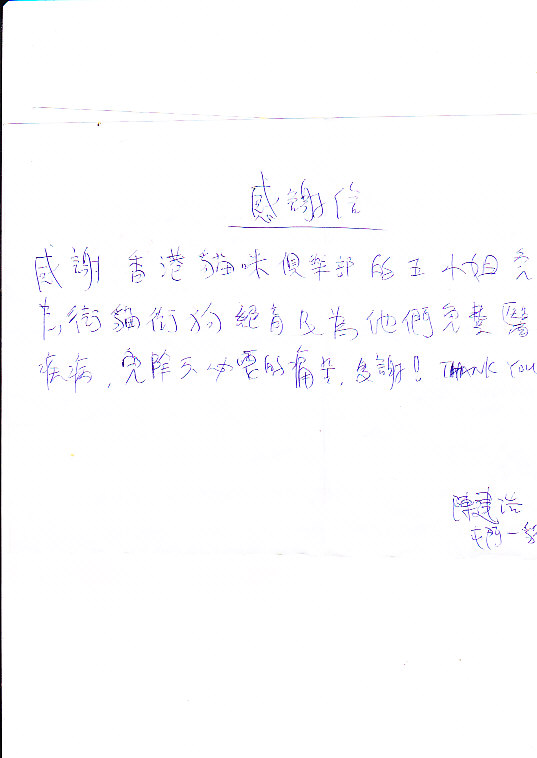 感謝信
感謝香港貓咪俱樂部的王小姐免
為街貓街狗絕育及為他們免費醫
疾病,免除不必要的痛苦,多謝! THANK YOU
陳建浩
屯門一